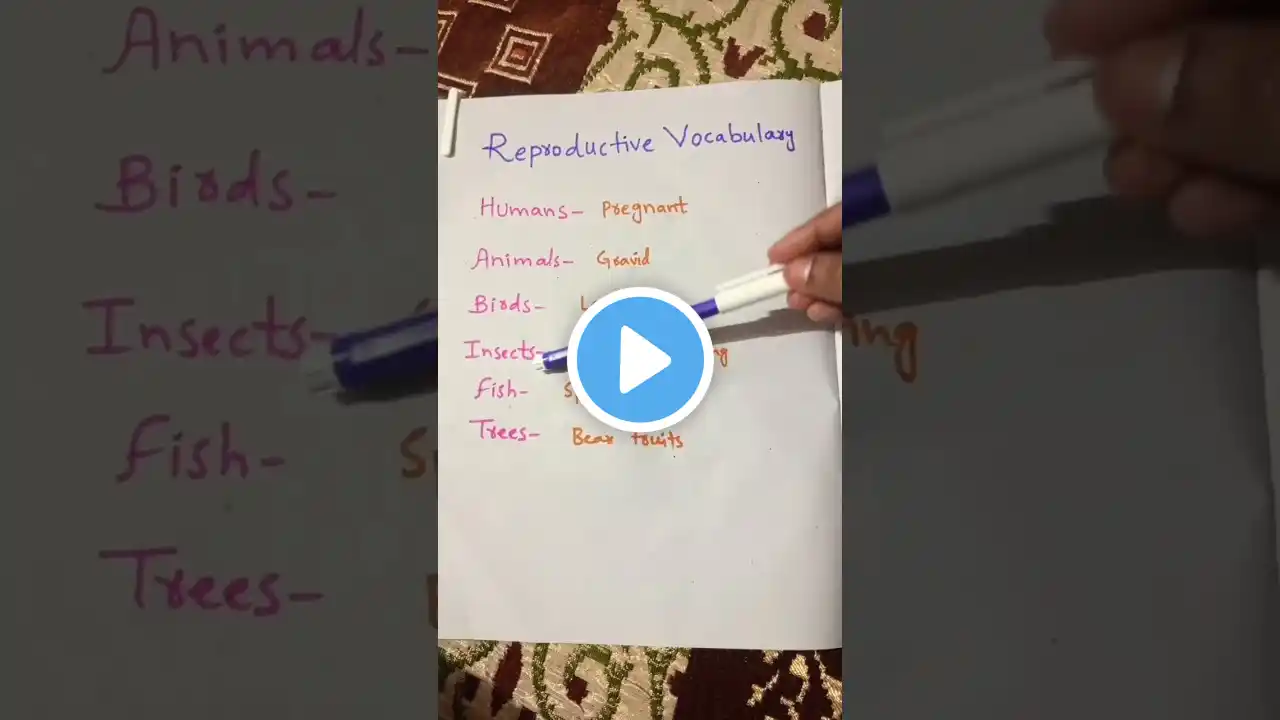 Reproductive Vocabulary
Humans- Pregnant
Animals- Gravid
Birds-
Insects-
Fish-
Trees- Bear fruits